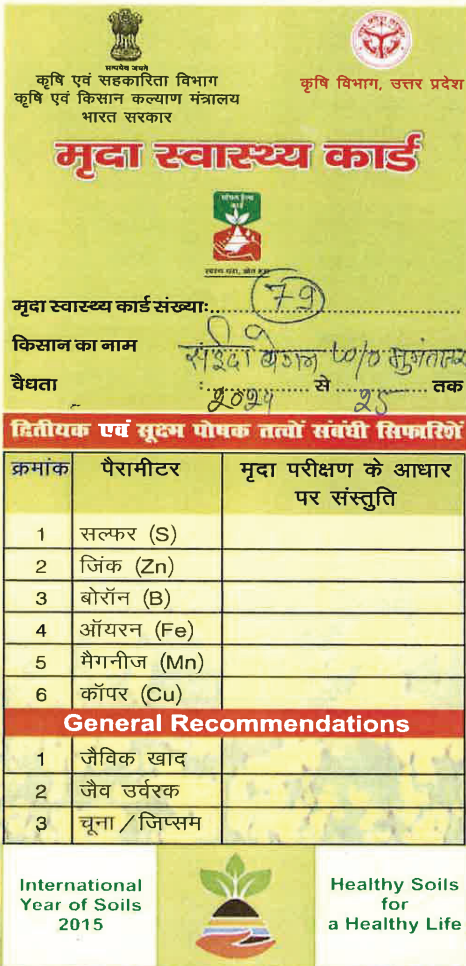 सत्यमेव जयते
कृषि एवं सहकारिता विभाग
कृषि एवं किसान कल्याण मंत्रालय
भारत सरकार
कृषि विभाग, उत्तर प्रदेश
मृदा स्वास्थ्य कार्ड
स्वस्थ धरा, खेत हरा
मृदा स्वास्थ्य कार्ड संख्याः 79
किसान का नाम सईदा बेगम
वैधता : २०२४ से २५ तक
द्वितीयक एवं सूक्ष्म पोषक तत्वों संबंधी सिफारिशें
क्रमांक पैरामीटर मृदा परीक्षण के आधार
पर संस्तुति
1 सल्फर (S)
2 जिंक (Zn)
3 बोरॉन (B)
4 ऑयरन (Fe)
5 मैगनीज (Mn)
6 कॉपर (Cu)
General Recommendations
1 जैविक खाद
2 जैव उर्वरक
3 चूना / जिप्सम
International
Year of Soils
2015
Healthy Soils
for
a Healthy Life